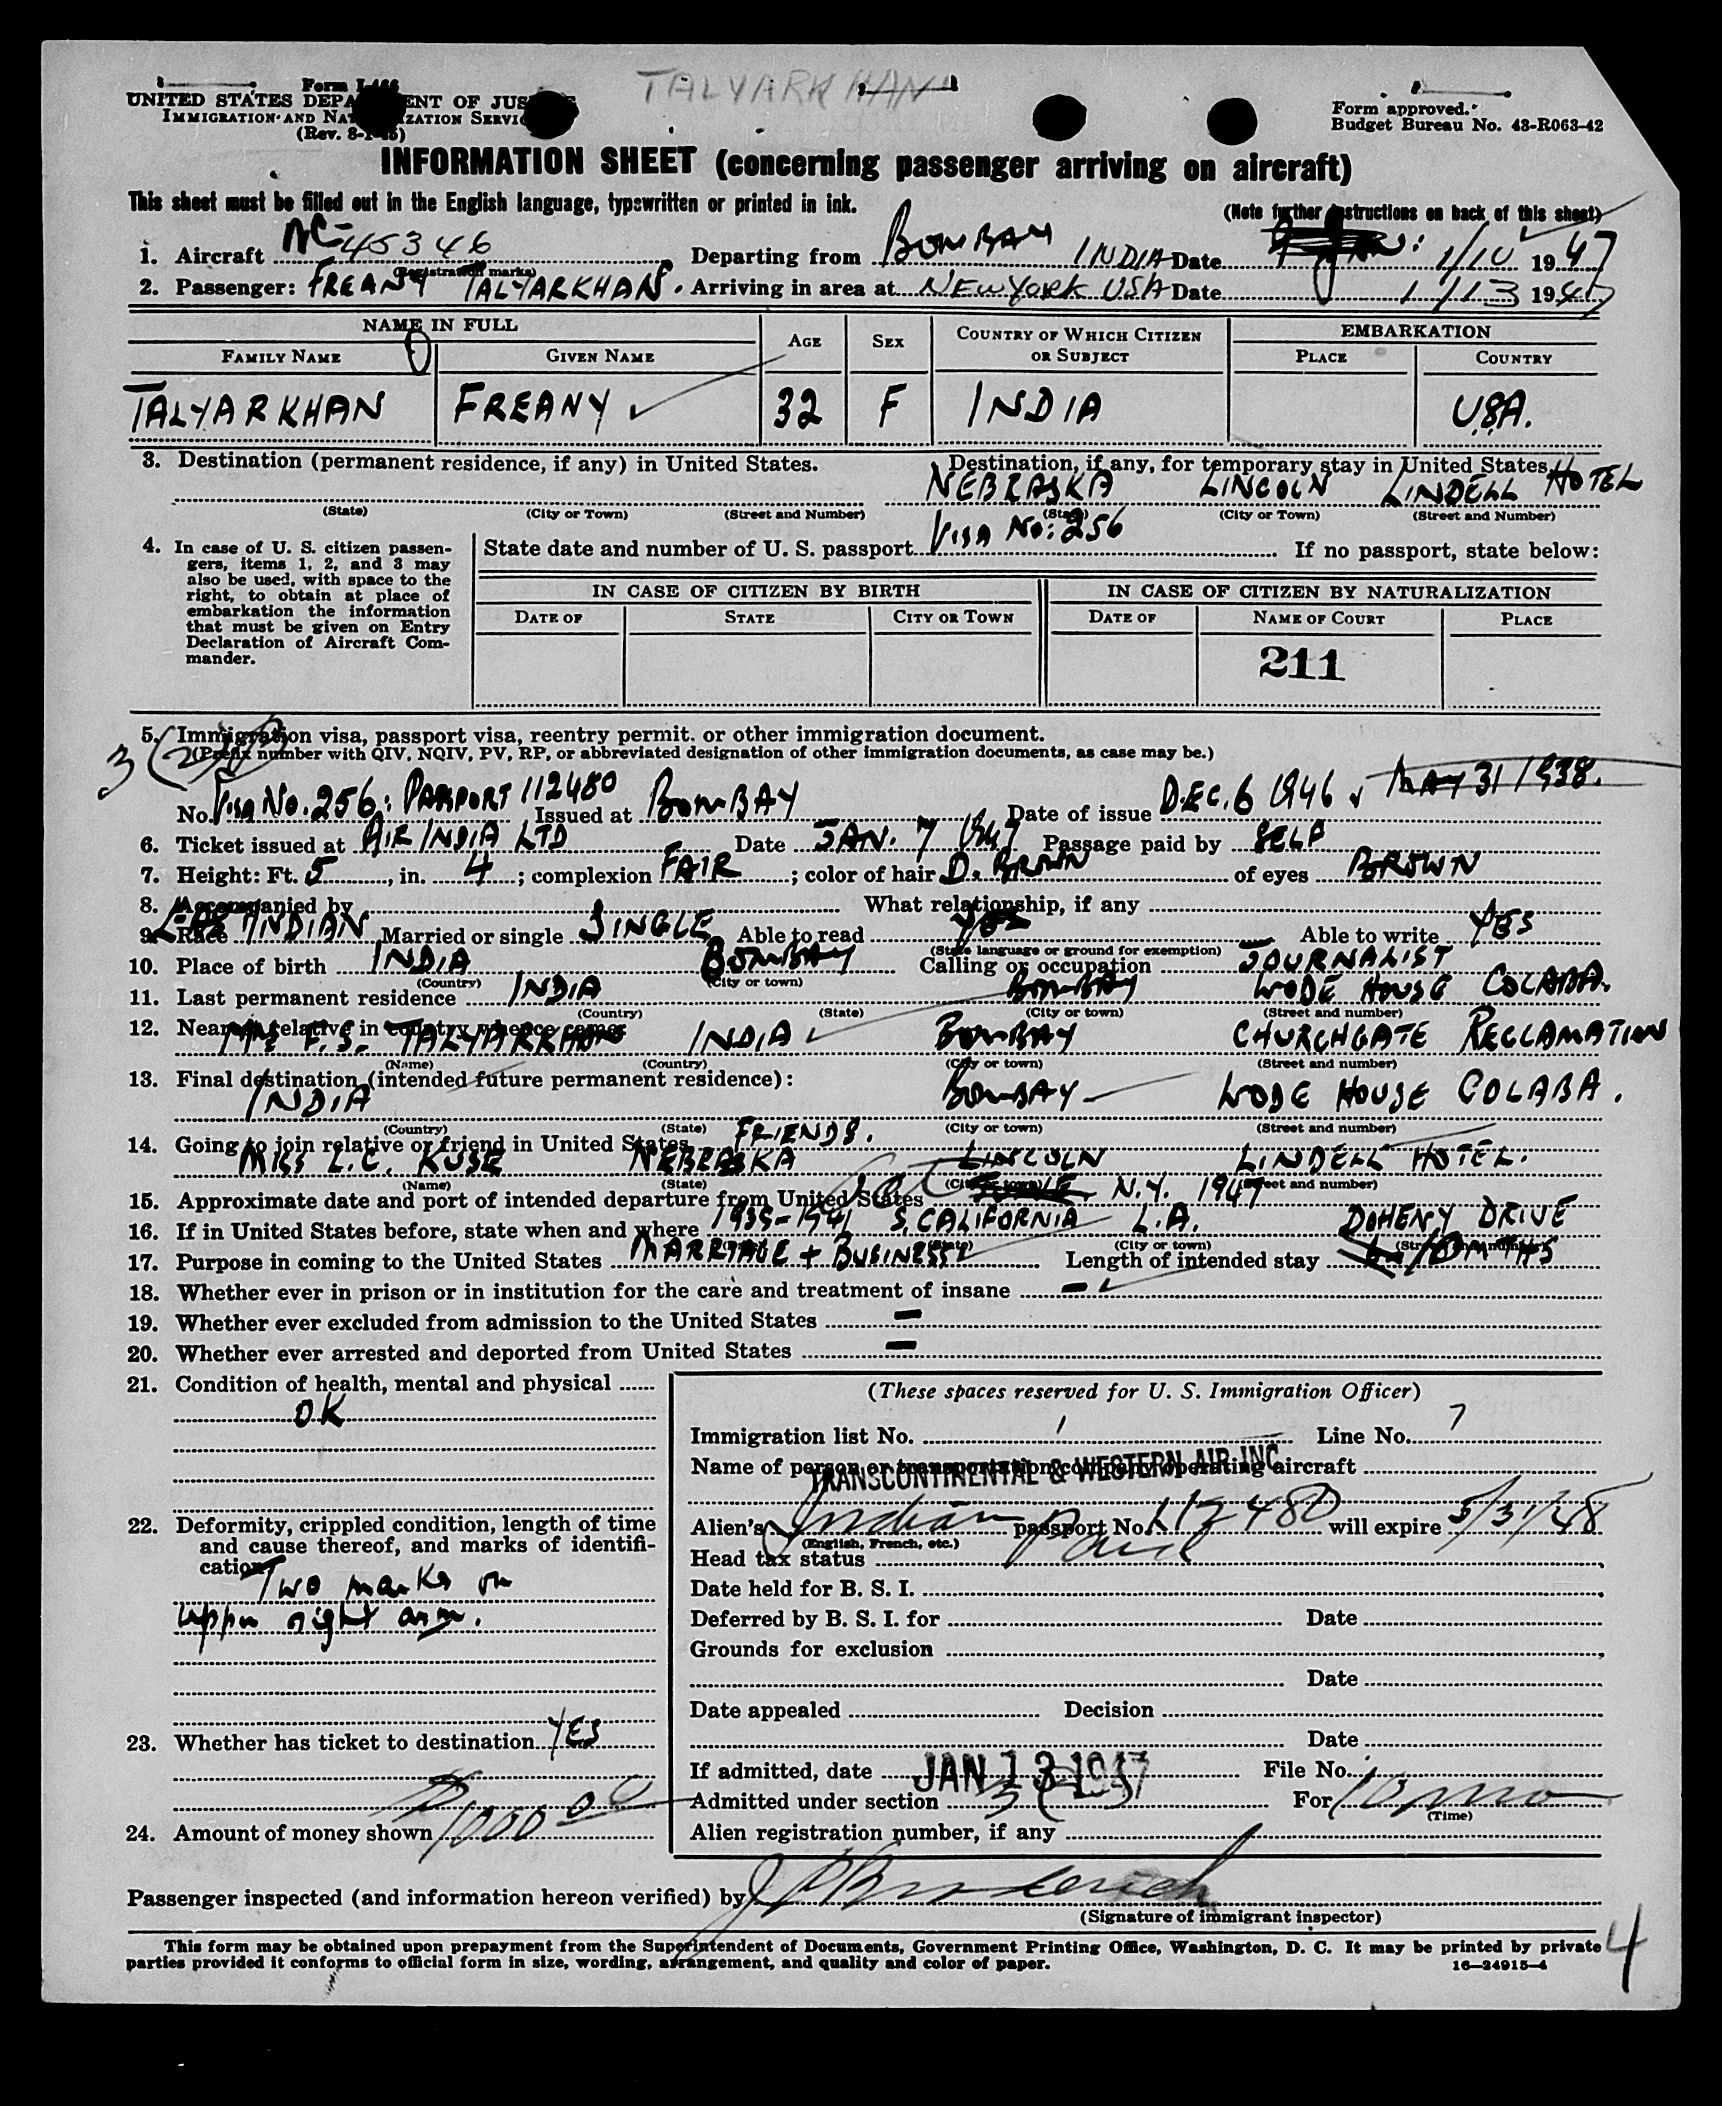 TALYARKHAN
Form I-466
UNITED STATES DEPARTMENT OF JUSTICE
IMMIGRATION AND NATURALIZATION SERVICE
(Rev. 8-1-45)
Form approved.
Budget Bureau No. 43-R063-42
INFORMATION SHEET (concerning passenger arriving on aircraft)
This sheet must be filled out in the English language, typewritten or printed in ink.
(Note further instructions on back of this sheet)
1. Aircraft NC-45346 Departing from BOMBAY INDIA Date 1/10 1947
(Registration marks)
2. Passenger: FREANY TALYARKHAN. Arriving in area at NEW YORK USA Date 1/13 1947
NAME IN FULL AGE SEX COUNTRY OF WHICH CITIZEN OR SUBJECT EMBARKATION
FAMILY NAME GIVEN NAME PLACE COUNTRY
TALYARKHAN FREANY 32 F INDIA U.S.A.
3. Destination (permanent residence, if any) in United States. Destination, if any, for temporary stay in United States.
NEBRASKA LINCOLN LINDELL HOTEL
(State) (City or Town) (Street and Number) (State) (City or Town) (Street and Number)
4. In case of U. S. citizen passengers, items 1, 2, and 3 may also be used, with space to the right, to obtain at place of embarkation the information that must be given on Entry Declaration of Aircraft Commander.
State date and number of U. S. passport VISA No: 256 If no passport, state below:
IN CASE OF CITIZEN BY BIRTH IN CASE OF CITIZEN BY NATURALIZATION
DATE OF STATE CITY OR TOWN DATE OF NAME OF COURT PLACE
211
5. Immigration visa, passport visa, reentry permit, or other immigration document.
(Prefix number with QIV, NQIV, PV, RP, or abbreviated designation of other immigration documents, as case may be.)
3(2)
No. VISA No. 256; PASSPORT 112480 Issued at BOMBAY Date of issue DEC. 6 1946 MAY 31 1938.
6. Ticket issued at AIR INDIA LTD Date JAN. 7 1947 Passage paid by SELF
7. Height: Ft. 5, in. 4; complexion FAIR; color of hair D. BROWN of eyes BROWN
8. Accompanied by What relationship, if any
9. Race INDIAN Married or single SINGLE Able to read YES Able to write YES
(State language or ground for exemption)
10. Place of birth INDIA BOMBAY Calling or occupation JOURNALIST
(Country) (City or town)
11. Last permanent residence INDIA BOMBAY WODE HOUSE COLABA.
(Country) (State) (City or town) (Street and number)
12. Nearest relative in country whence came
F.S. TALYARKHAN INDIA BOMBAY CHURCHGATE RECLAMATION
(Name) (Country) (City or town) (Street and number)
13. Final destination (intended future permanent residence):
INDIA BOMBAY WODE HOUSE COLABA.
(Country) (State) (City or town) (Street and number)
14. Going to join relative or friend in United States FRIENDS.
MISS L.C. KUSE NEBRASKA LINCOLN LINDELL HOTEL.
(Name) (State) (City or town) (Street and number)
15. Approximate date and port of intended departure from United States Oct N.Y. 1947
16. If in United States before, state when and where 1935-1941 S. CALIFORNIA L.A. DOHENY DRIVE
(State) (City or town) (Street and number)
17. Purpose in coming to the United States MARRIAGE + BUSINESS Length of intended stay 10 MTHS
18. Whether ever in prison or in institution for the care and treatment of insane –
19. Whether ever excluded from admission to the United States –
20. Whether ever arrested and deported from United States –
21. Condition of health, mental and physical
OK
22. Deformity, crippled condition, length of time and cause thereof, and marks of identification
Two marks on
upper right arm.
23. Whether has ticket to destination YES
24. Amount of money shown $1000.00
(These spaces reserved for U. S. Immigration Officer)
Immigration list No. 1 Line No. 7
Name of person or transportation company operating aircraft
TRANSCONTINENTAL & WESTERN AIR INC
Alien's Indian passport No. 112480 will expire 5/31/48
(English, French, etc.)
Head tax status Paid
Date held for B. S. I.
Deferred by B. S. I. for Date
Grounds for exclusion
Date
Date appealed Decision
Date
If admitted, date JAN 13 1947 File No.
Admitted under section 3(2) For 10 mo
(Time)
Alien registration number, if any
Passenger inspected (and information hereon verified) by
(Signature of immigrant inspector)
This form may be obtained upon prepayment from the Superintendent of Documents, Government Printing Office, Washington, D. C. It may be printed by private
parties provided it conforms to official form in size, wording, arrangement, and quality and color of paper.
16—24915-4
4